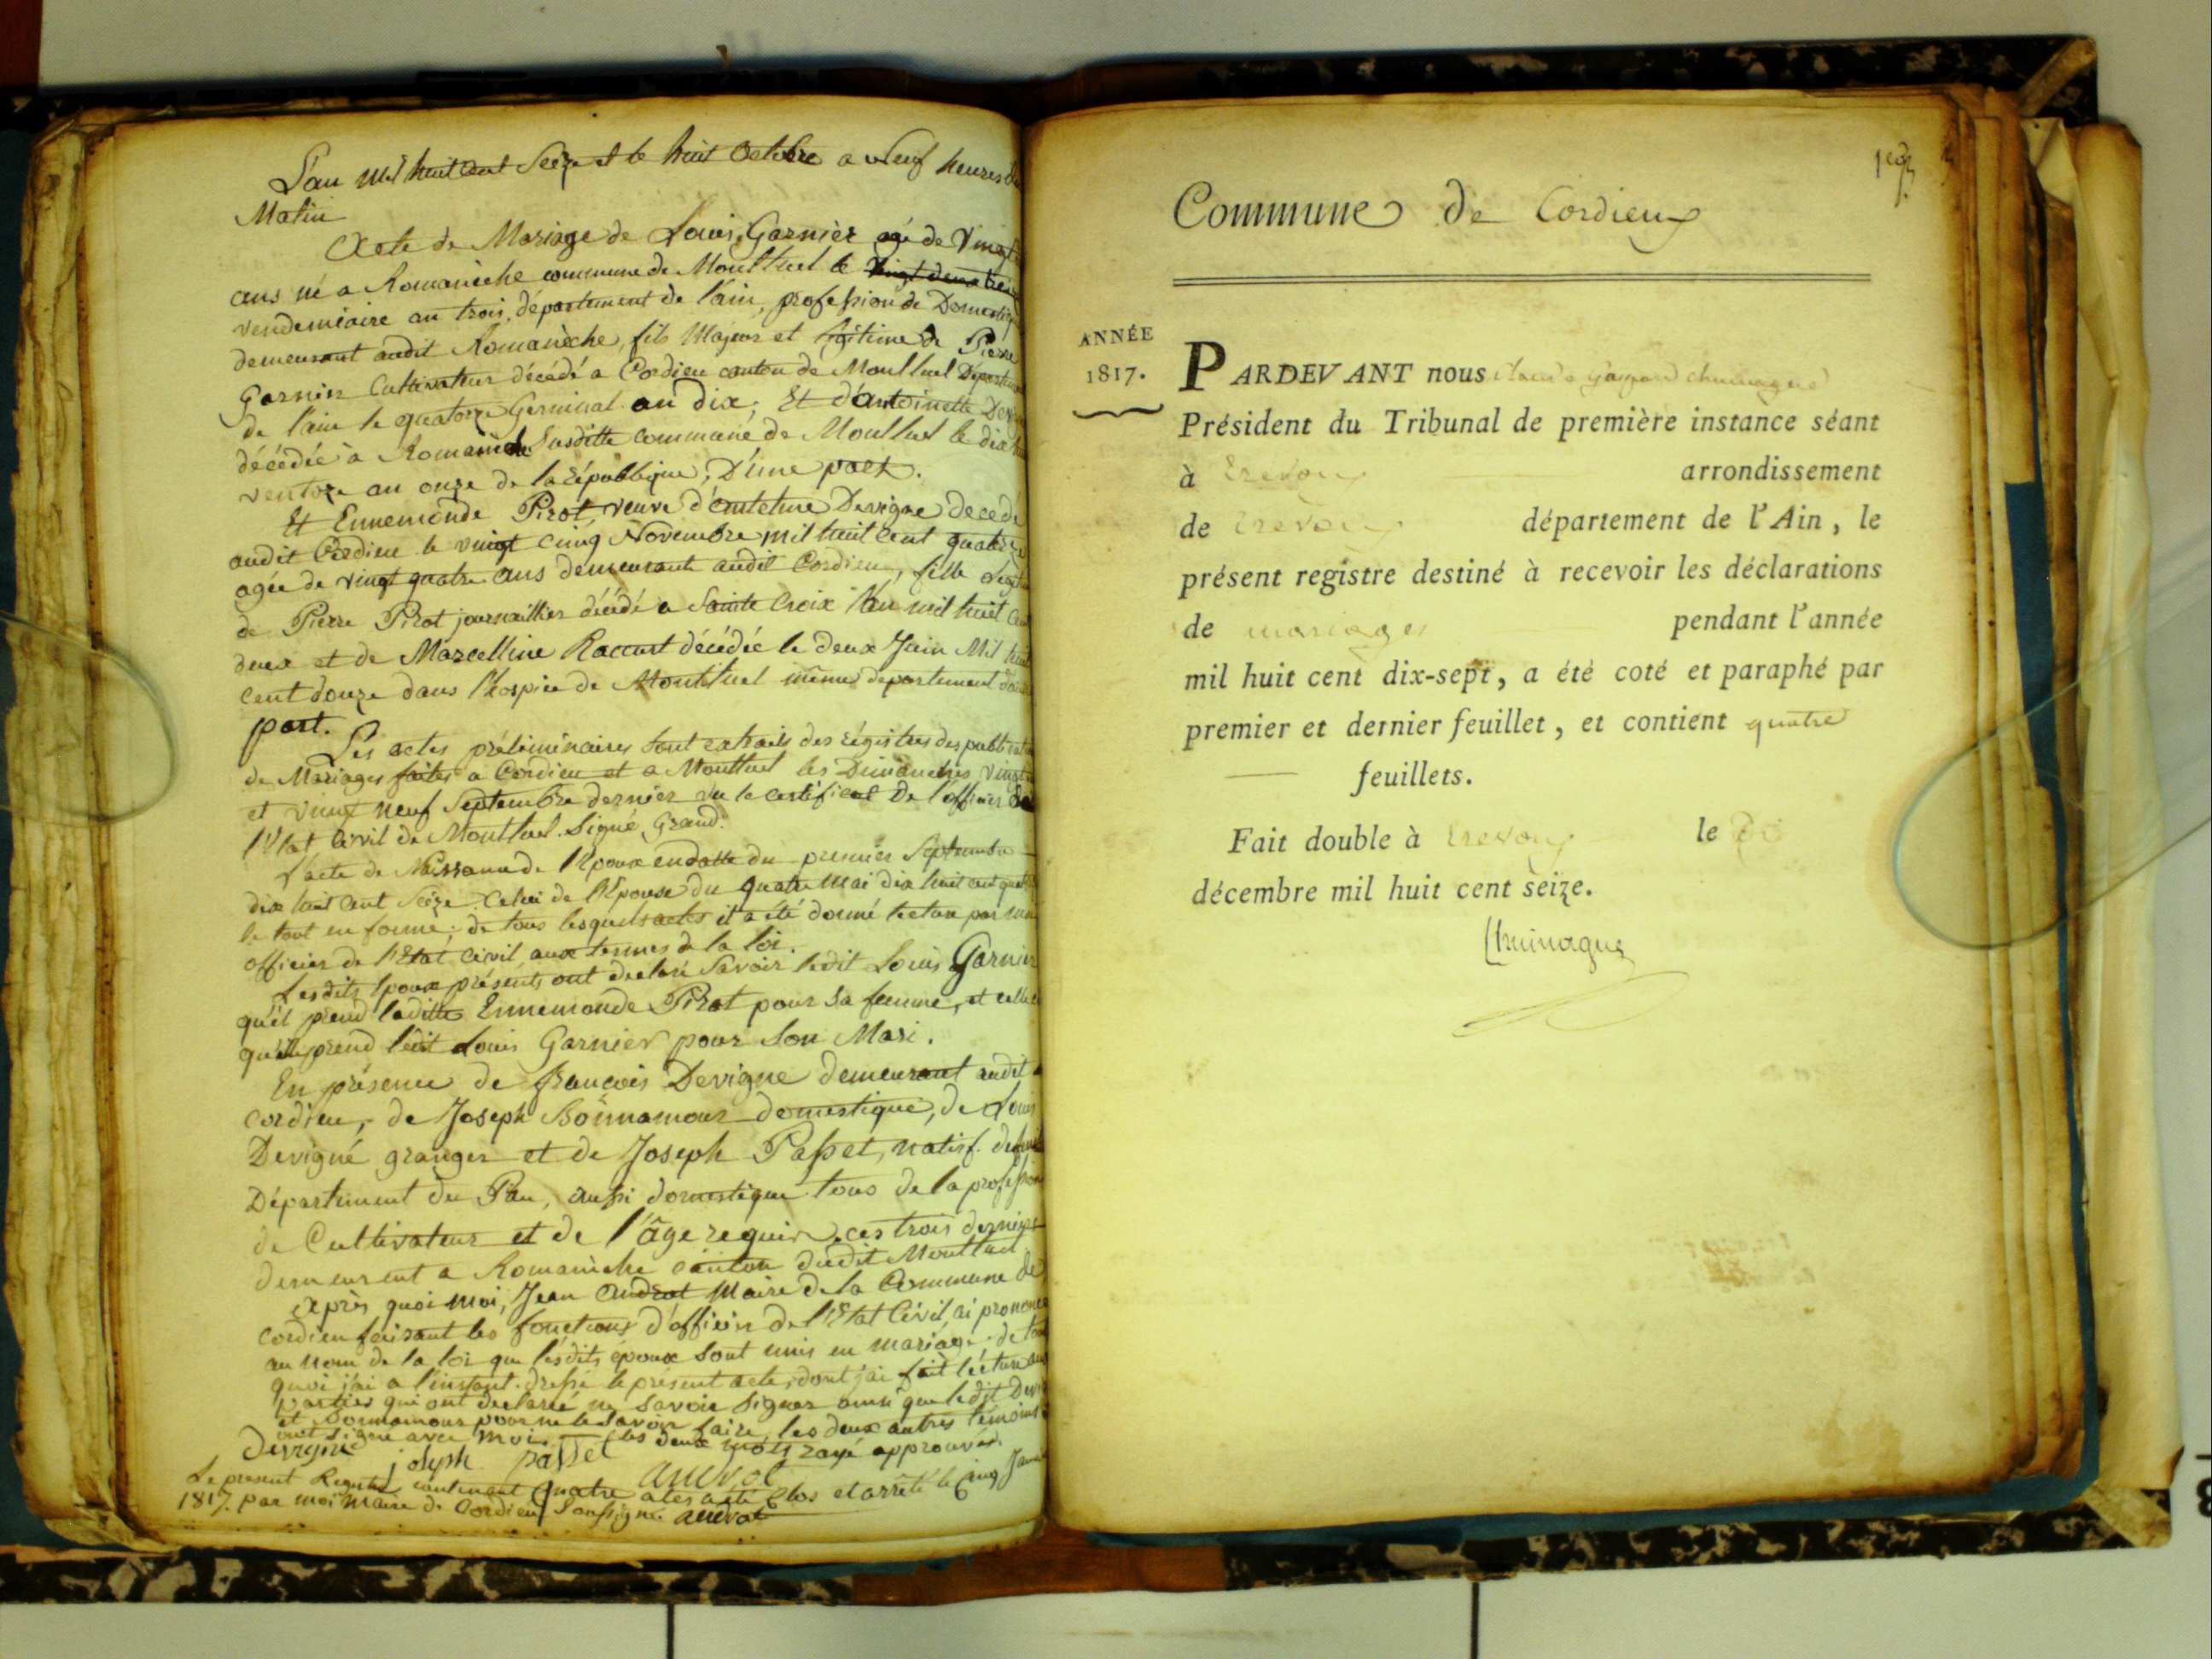 L'an mil huit cent Seize et le huit Octobre a Neuf heures du
Matin
Acte de Mariage de Louis Garnier agé de Vingt
ans né a Romanèche commune de Montluel le
vendemiaire an trois, département de l'ain, profession de Domestique
demeurant audit Romanèche, fils Majeur et légitime de Pierre
Garnier Cultivateur décédé a Cordieu canton de Montluel Département
de l'ain le quatorze Germinal an dix; Et d'antoinette
décédée à Romanèche Susditte commune de Montluel le dix
ventose an onze de la république; D'une part.
Et Ennemonde Pirot, veuve d'antelme Devigne décédé
audit Cordieu le vingt cinq Novembre mil huit cent quatorze
agée de vingt quatre ans demeurante audit Cordieu, fille
de Pierre Pirot journaillier décédé a Sainte Croix l'an mil huit cent
deux et de Marcelline Racurt décédée le deux Juin Mil huit
cent douze dans l'hospice de Montluel même département d'autre
part.
Les actes préliminaires sont extraits des régistres des publications
de Mariages faites a Cordieu et a Montluel les Dimanches Vingt
et vingt neuf Septembre dernier vu le certificat de l'officier de
l'Etat Civil de Montluel Signé Grand.
L'acte de Naissance de l'Epoux en datte du premier Septembre
dix huit cent Seize. Celui de l'Epouse du quatre mai dix huit cent
le tout en forme; de tous lesquels actes il a été donné lecture par moi
officier de l'Etat Civil aux termes de la loi.
Lesdits Epoux présents ont declaré Savoir ledit Louis Garnier
qu'il prend laditte Ennemonde Pirot pour sa femme, et celle ci
qu'elle prend ledit Louis Garnier pour Son Mari.
En présence de françois Devigne demeurant audit
Cordieu, de Joseph Bonnamour domestique, de Louis
Devigne granger et de Joseph Passet, natif
Département du Pau, aussi domestique tous de la profession
de Cultivateur et de l'âge requis, ces trois derniers
demeurent a Romanèche canton dudit Montluel
après quoi moi, Jean Andrat Maire de la Commune de
Cordieu faisant les fonctions d'officier de l'Etat Civil, ai prononcé
au nom de la loi que lesdits époux Sont unis en mariage. de tout
quoi j'ai a l'instant dressé le présent acte, dont j'ai fait lécture aux
parties qui ont declarée ne Savoir Signer ainsi que ledit
et Bonnamour pour ne le Savoir faire, les deux autres témoins
ont Signé avec moi. les deux mots rayé approuvés.
devigne joseph passet andrat
Le present Registre contenant quatre actes a été Clos et arrêté le Cinq Janvier
1817. par moi Maire de Cordieu Soussigné. andrat
Commune de Cordieux
ANNÉE
1817.
PARDEVANT nous Claude Gaspard Chuinague
Président du Tribunal de première instance séant
à Trevoux arrondissement
de Trevoux département de l'Ain, le
présent registre destiné à recevoir les déclarations
de mariages pendant l'année
mil huit cent dix-sept, a été coté et paraphé par
premier et dernier feuillet, et contient quatre
feuillets.
Fait double à Trevoux le
décembre mil huit cent seize.
Chuinague